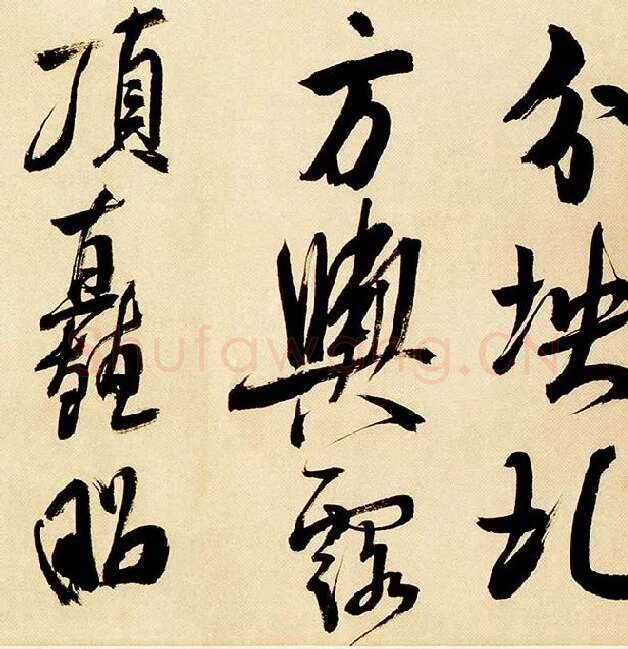 分坱圠
方輿露
頂矗昭
Shufawang.CN